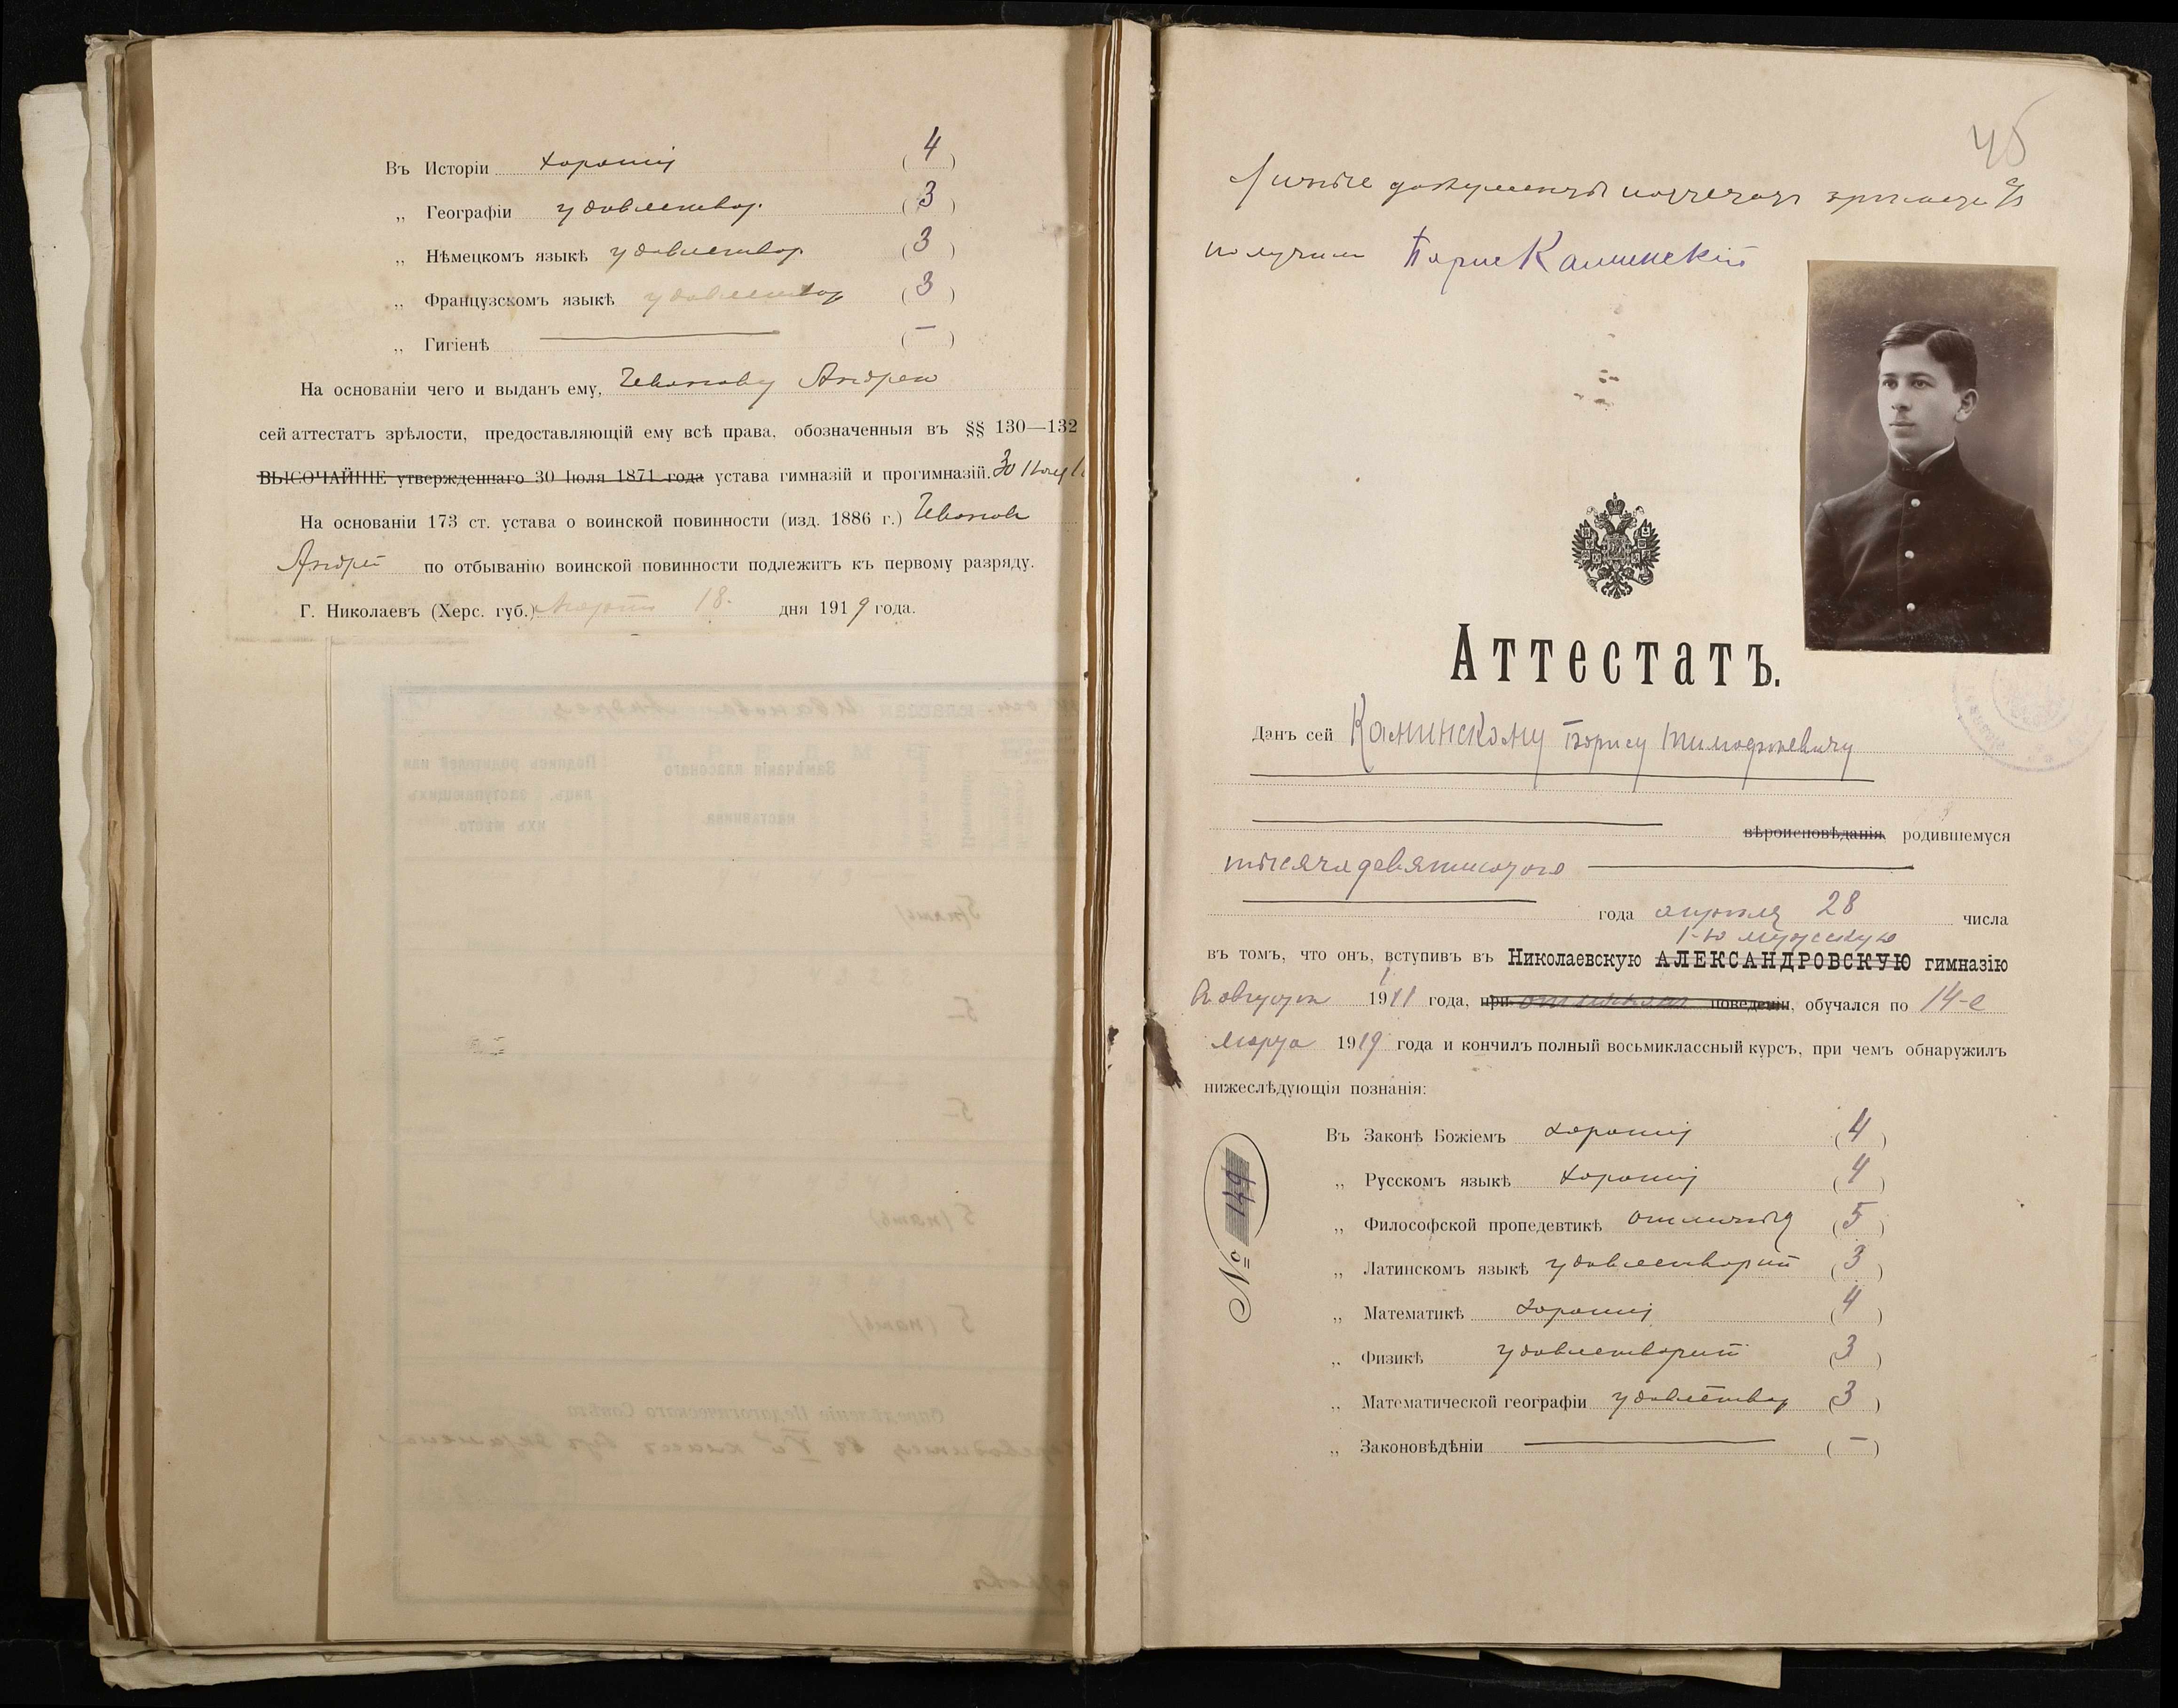 Въ Исторіи хорошія (4)
„ Географіи удовлетвор. (3)
„ Нѣмецкомъ языкѣ удовлетвор (3)
„ Французскомъ языкѣ удовлетвор (3)
„ Гигіенѣ (—)
На основаніи чего и выданъ ему, Иванову Андрею
сей аттестатъ зрѣлости, предоставляющій ему всѣ права, обозначенныя въ §§ 130—132
ВЫСОЧАЙШЕ утвержденнаго 30 Іюля 1871 года устава гимназій и прогимназій. 30
На основаніи 173 ст. устава о воинской повинности (изд. 1886 г.) Иванов
Андрей по отбыванію воинской повинности подлежитъ къ первому разряду.
Г. Николаевъ (Херс. губ.) Марта 18. дня 1919 года.
45
документы аттестат зрелости
получил Борис Каминский
Аттестатъ.
Данъ сей Каминскому Борису Тимофеевичу
вѣроисповѣданія, родившемуся
тысяча девятисотого
года апреля 28 числа
1-ю мужскую
въ томъ, что онъ, вступивъ въ Николаевскую АЛЕКСАНДРОВСКУЮ гимназію
августа 1911 года, при отличном поведеніи, обучался по 14-е
марта 1919 года и кончилъ полный восьмиклассный курсъ, при чемъ обнаружилъ
нижеслѣдующія познанія:
№ 149
Въ Законѣ Божіемъ хорошія (4)
„ Русскомъ языкѣ хорошія (4)
„ Философской пропедевтикѣ отличныя (5)
„ Латинскомъ языкѣ удовлетворит (3)
„ Математикѣ хорошія (4)
„ Физикѣ удовлетворит (3)
„ Математической географіи удовлетвор (3)
„ Законовѣдѣніи (—)